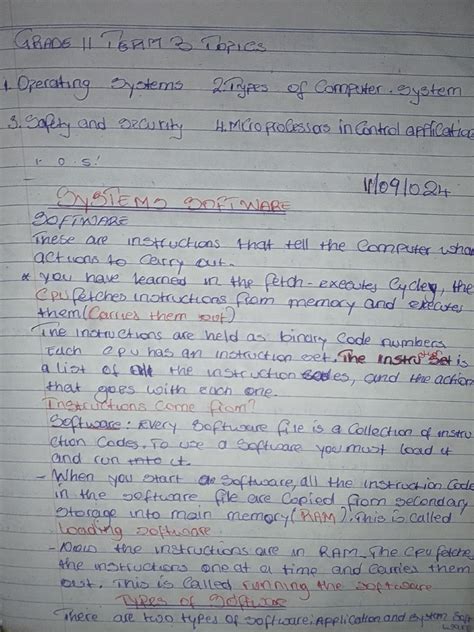 GRADE 11 TERM 3 TOPICS
1. Operating Systems 2. Types of Computer System
3. Safety and Security 4. Microprocessors in Control applications
1. O.S:
11/09/024
SYSTEMS SOFTWARE
SOFTWARE
These are instructions that tell the Computer what
actions to carry out.
* You have learned in the fetch-executes Cycle, the
CPU fetches instructions from memory and executes
them (Carries them out)
The instructions are held as binary Code numbers
Each CPU has an instruction set. The instruction set is
a list of all the instruction codes, and the action
that goes with each one.
Instructions Come from?
Software: Every software file is a Collection of instru
ction Codes. To use a software you must load it
and run it.
- When you start a software, all the instruction Code
in the software file are Copied from secondary
Storage into main memory (RAM). This is called
Loading software.
- Now the instructions are in RAM. The CPU fetches
the instructions one at a time and carries them
out. This is Called running the software
Types of Software
There are two types of software: Application and System Soft